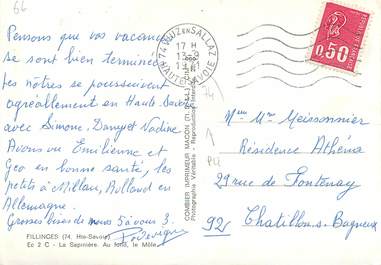 66
Pensons que vos vacances
se sont bien terminées
les nôtres se poursuivent
agréablement en Haute Savoie
avec Simone, Dany et Nadine
Avons vu Emilienne et
Geo en bonne santé, les
petits à Millau, Rolland en
Allemagne.
Grosses bises de nous 5 à vous 3.
FILLINGES (74, Hte-Savoie)
Ec 2 C - La Sapinière. Au fond, le Môle.
COMBIER IMPRIMEUR MACON
Photographie Véritable - Reproduction Interdite
74 VIUZ EN SALLAZ
17 H
HAUTE SAVOIE
0,50
Mme Mr Meissonnier
Résidence Athéna
29 rue de Fontenay
92 Chatillon s. Bagneux